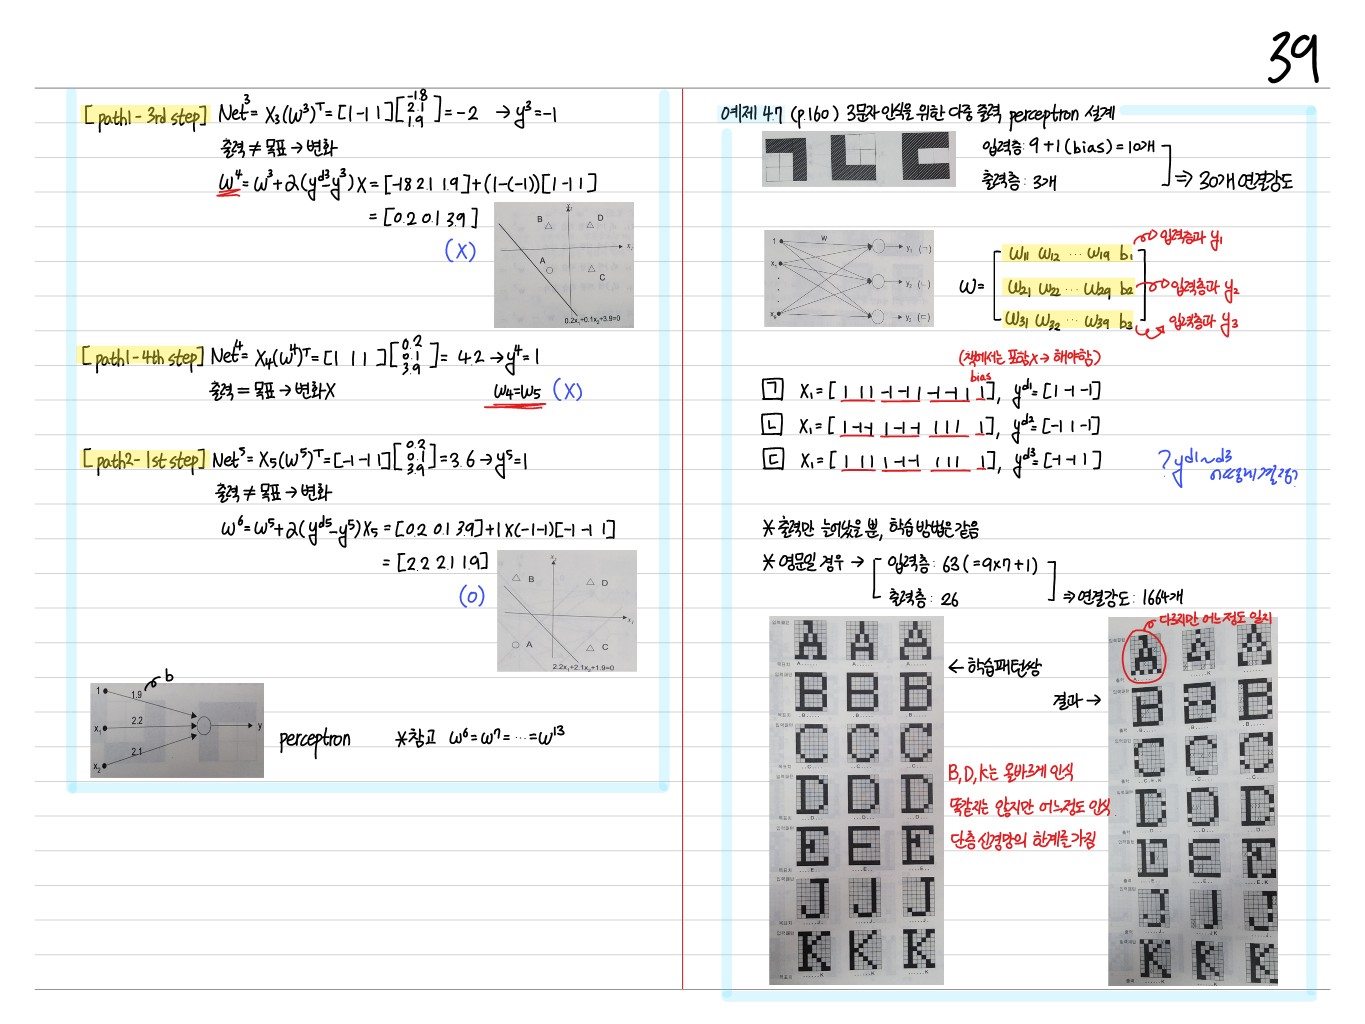 39
[path1-3rd step] Net³ = X₃(W³)ᵀ = [1 -1 1] [-1.8 2.1 1.9] = -2 → y³ = -1
출력 ≠ 목표 → 변화
W⁴ = W³ + 2(y^d3 - y³)X = [-1.8 2.1 1.9] + (1-(-1))[1 -1 1]
= [0.2 0.1 3.9]
(X)
B D
A C
0.2x₁+0.1x₂+3.9=0
[path1-4th step] Net⁴ = X₄(W⁴)ᵀ = [1 1 1] [0.2 0.1 3.9] = 4.2 → y⁴ = 1
출력 = 목표 → 변화X
W4=W5 (X)
[path2-1st step] Net⁵ = X₅(W⁵)ᵀ = [-1 -1 1] [0.2 0.1 3.9] = 3.6 → y⁵ = 1
출력 ≠ 목표 → 변화
W⁶ = W⁵ + 2(y^d5 - y⁵)X₅ = [0.2 0.1 3.9] + 1×(-1-1)[-1 -1 1]
= [2.2 2.1 1.9]
(O)
x₂
B D
x₁
A C
2.2x₁+2.1x₂+1.9=0
b
1 1.9
x₁ 2.2 y
x₂ 2.1
perceptron *참고 W⁶ = W⁷ = ... = W¹³
예제 4.7 (p.160) 3문자 인식을 위한 다중 출력 perceptron 설계
입력층: 9+1(bias) = 10개
출력층: 3개
⇒ 30개 연결강도
1 W y₁ (ㄱ)
y₂ (ㄴ)
y₃ (ㄷ)
W = [
W11 W12 ... W19 b1 입력층과 y₁
W21 W22 ... W29 b2 입력층과 y₂
W31 W32 ... W39 b3 입력층과 y₃
]
(책에서는 포함X → 해야함)
bias
ㄱ X₁ = [1 1 1 -1 -1 1 -1 -1 1 1], y^d1 = [1 -1 -1]
ㄴ X₁ = [1 -1 -1 1 -1 -1 1 1 1 1], y^d2 = [-1 1 -1]
ㄷ X₁ = [1 1 1 1 -1 -1 1 1 1 1], y^d3 = [-1 -1 1]
? y^d1~d3 어떻게 결정?
* 출력만 늘어났을 뿐, 학습 방법은 같음
* 영문일 경우 → 입력층: 63(=9×7+1)
출력층: 26
⇒ 연결강도: 1664개
← 학습패턴쌍
결과 →
다르지만 어느정도 일치
B, D, K는 올바르게 인식
똑같지는 않지만 어느정도 인식
단층신경망의 한계를 가짐